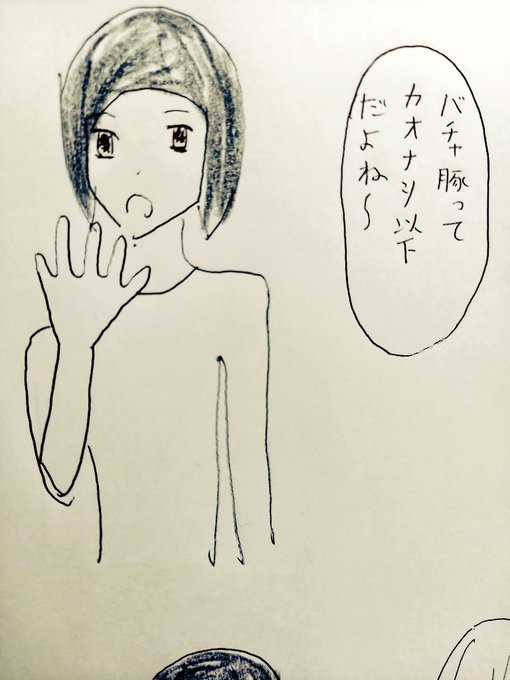 バチャ豚って
カオナシ以下
だよね〜